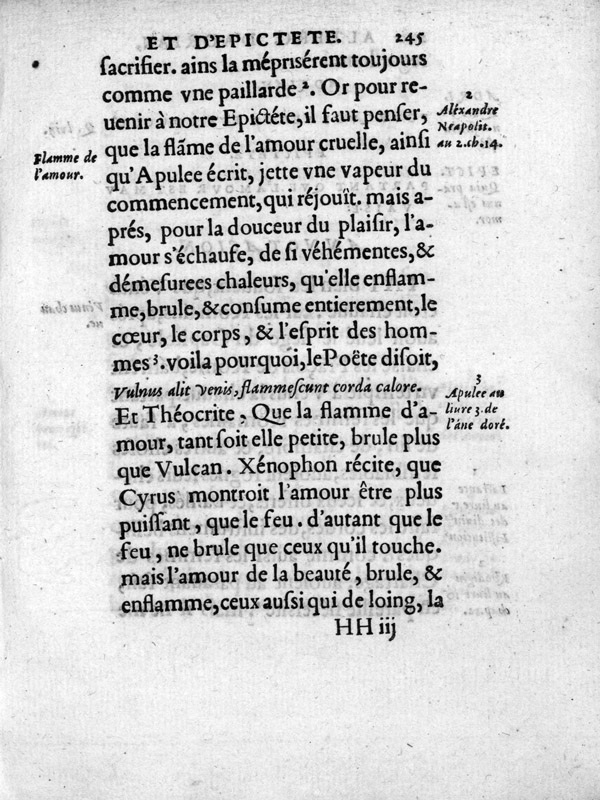 ET D'EPICTETE. 245
ſacrifier. ains la mépriſérent toujours
comme vne paillarde ². Or pour re-
uenir à notre Epictéte, il faut penſer,
que la flãme de l'amour cruelle, ainſi
qu'Apulee écrit, jette vne vapeur du
commencement, qui réjouît. mais a-
prés, pour la douceur du plaiſir, l'a-
mour s'échaufe, de ſi véhémentes, &
démeſurees chaleurs, qu'elle enflam-
me, brule, & conſume entierement, le
cœur, le corps, & l'eſprit des hom-
mes ³. voila pourquoi, le Poëte diſoit,
Vulnus alit venis, flammeſcunt corda calore.
Et Théocrite, Que la flamme d'a-
mour, tant ſoit elle petite, brule plus
que Vulcan. Xénophon récite, que
Cyrus montroit l'amour être plus
puiſſant, que le feu. d'autant que le
feu, ne brule que ceux qu'il touche.
mais l'amour de la beauté, brule, &
enflamme, ceux auſsi qui de loing, la
HH iij
Flamme de
l'amour.
2
Aléxandre
Neapolit.
au 2. ch. 14.
3
Apulee au
liure 3. de
l'áne doré.